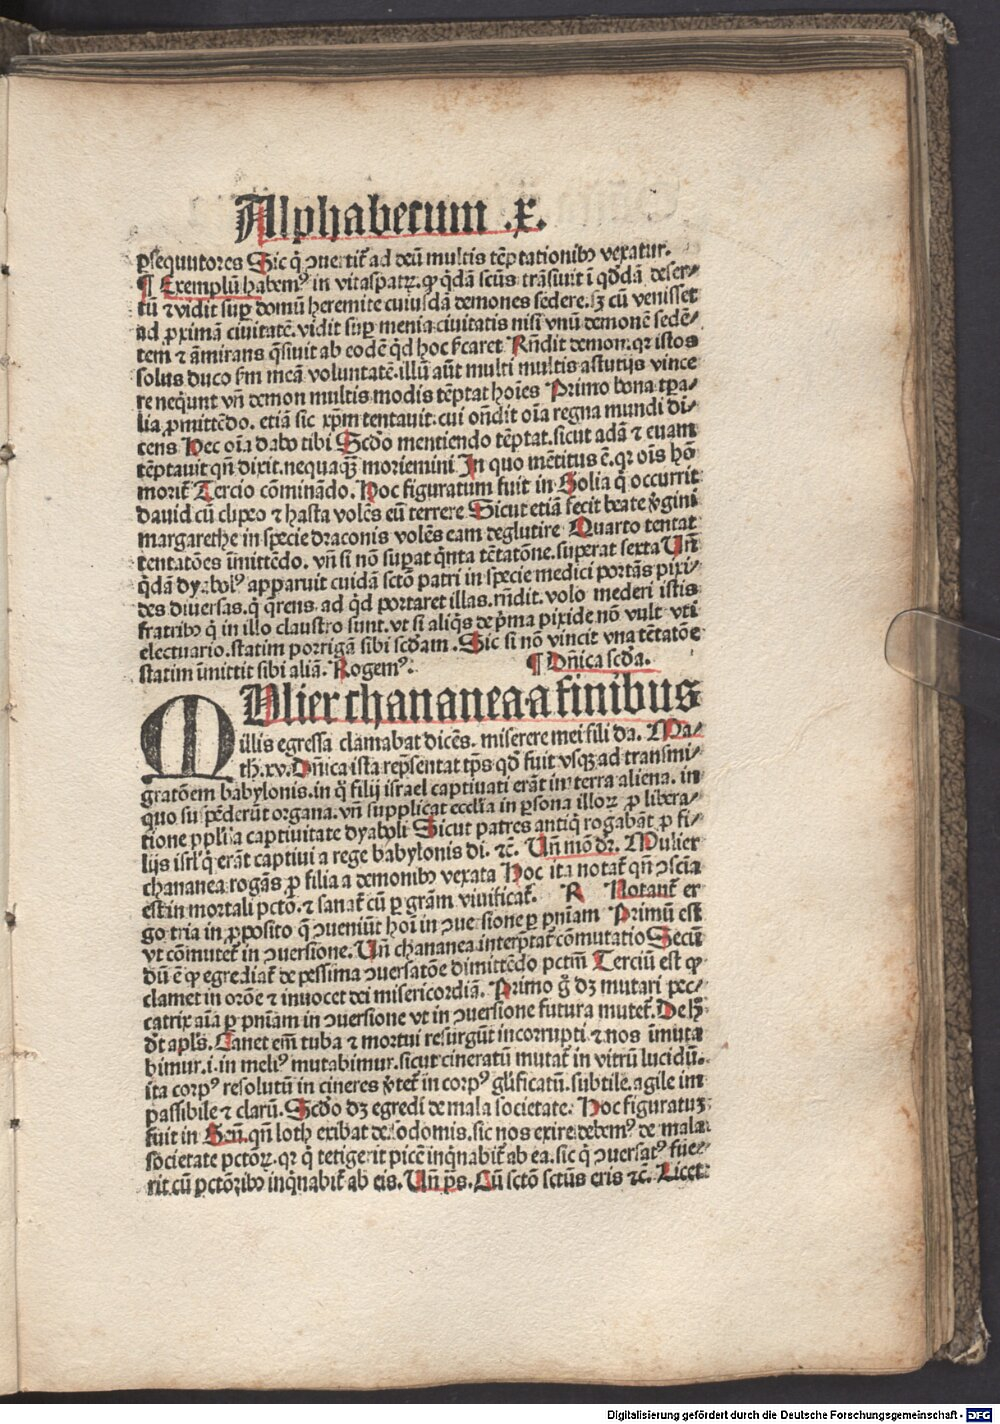 Alphabetum .x.
ꝑsequutores Sic q̇ ↄuertit᷑ ad deū multis tēptationibꝰ vexatur.
¶ Exemplū habemꝰ in vitaspatꝝ. ꝙ qͥdā scūs trāsiuit ī qͦddā deser⸗
tū ⁊ vidit suꝑ domū heremite cuiusdā demones sedere. sꝫ cū venisset
ad ꝓximā ciuitatē. vidit suꝑ menia ciuitatis nisi vnū demonē sedē⸗
tem ⁊ āmirans q̄siuit ab eodē qͥd hoc faceret Rn̄dit demon. qꝛ istos
solus duco s̄m meā voluntatē. illū aūt multi multis astutijs vince
re neq̄unt vn̄ demon multis modis tēptat hoīes Primo bona tꝑa⸗
lia ꝓmittēdo. etiā sic xp̄m tentauit. cui on̄dit oīa regna mundi di⸗
cens Hec oīa dabo tibi Scdo mentiendo tēptat. sicut adā ⁊ euam
tēptauit qn̄ dixit. nequaqͣꝫ moriemini In quo mētitus ē. qꝛ oīs hō
morit᷑ Tercio cōminādo. Hoc figuratum fuit in Golia q̇ occurrit
dauid cū clipeo ⁊ hasta volēs eū terrere Sicut etiā fecit beate v̇gini
margarethe in specie draconis volēs eam deglutire Quarto tentat
tentatōes īmittēdo. vn̄ si nō suꝑat qͥnta tētatōne. superat sexta Vn̄
qͥdā dyabolꝰ apparuit cuidā sctō patri in specie medici portās pixi⸗
des diuersas. q̇ q̄rens. ad qͥd portaret illas. rn̄dit. volo mederi istis
fratribꝰ q̇ in illo claustro sunt. vt si aliqͥs de pͥma pixide nō vult vti
electuario. statim porrigā sibi scdam. Sic si nō vincit vna tētatōe
statim īmittit sibi aliā. Rogemꝰ. ¶ Dn̄ica scda.
MVlier chananea a finibus
illis egressa clamabat dicēs. miserere mei fili da. Ma⸗
th. xv. Dn̄ica ista rep̄sentat tp̄s qd̄ fuit vsqꝫ ad transmi⸗
gratōem babylonis. in q̇ filij israel captiuati erāt in terra aliena. in
quo suspēderūt organa. vn̄ supplicat eccl̄ia in ꝑsona illoꝝ ꝓ libera⸗
tione ppl̄i a captiuitate dyaboli Sicut patres antiqͥ rogabāt ꝓ fi⸗
lijs isrl̄ q̇ erāt captiui a rege babylonis di. ⁊c̄. Vn̄ mō dr̄. Mulier
chananea rogās ꝓ filia a demonibꝰ vexata Hoc ita notat᷑ qn̄ ↄscīa
est in mortali pctō. ⁊ sanat᷑ cū ꝑ grām viuificat᷑. R Notant᷑ er
go tria in ꝓposito q̄ ↄueniūt hoī in ↄuersione ꝑ pn̄iam Primū est
vt cōmutet᷑ in ↄuersione. Vn̄ chananea interp̄tat᷑ cōmutatio Secū
dū ē ꝙ egrediat᷑ de pessima ↄuersatōe dimittēdo pctm̄ Terciū est ꝙ
clamet in orōe ⁊ inuocet dei misericordiā. Primo g̊ dꝫ mutari pec⸗
catrix aīa ꝑ pn̄iam in ↄuersione vt in ↄuersione futura mutet᷑. De h̄
dt apl̄s. Canet em̄ tuba ⁊ mortui resurgūt incorrupti. ⁊ nos īmuta
bimur. i. in meliꝰ mutabimur. sicut cineratū mutat᷑ in vitrū lucidū.
ita corpꝰ resolutū in cineres v̇tet᷑ in corpꝰ glīficatū. subtile. agile im
passibile ⁊ clarū. Scdo dꝫ egredi de mala societate. Hoc figuratuꝫ
fuit in Gen̄. qn̄ loth exibat de sodomis. sic nos exire debemꝰ de mala
societate pctōꝝ. qꝛ q̇ tetigerit picē inqͥnabit᷑ ab ea. sic q̇ ↄuersatꝰ fue⸗
rit cū pctōribꝰ inqͥnabit᷑ ab eis. Vn̄ ps. Cū sctō sctūs eris ⁊c̄. Licet
Digitalisierung gefördert durch die Deutsche Forschungsgemeinschaft - DFG